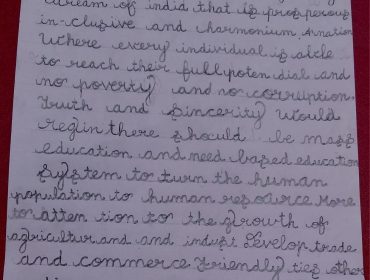 dream of india that is prosperous
in-clusive and charmonium. Anation
Where every individual is able
to reach their full poten dial and
no poverty and no corruption.
Truth and Sincerity would
regin there should be mass
education and need based education
System to turn the human
population to human resource More
to atten tion to the growth of
agricultur and and indust Develop trade
and commerce friendly ties other